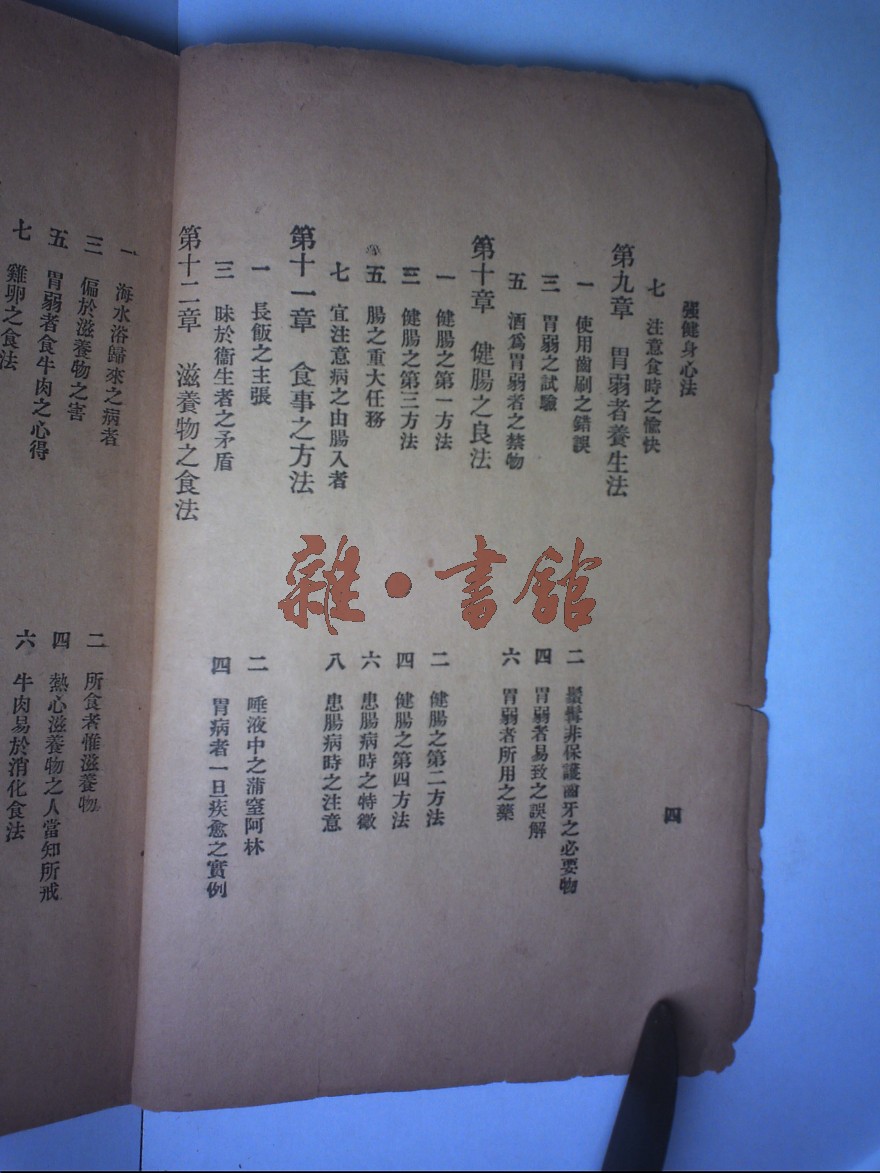 强健身心法
四
七 注意食時之愉快
第九章 胃弱者養生法
一 使用齒刷之錯誤
二 鬆髒非保護齒牙之必要物
三 胃弱之試驗
四 胃弱者易致之誤解
五 酒爲胃弱者之禁物
六 胃弱者所用之藥
第十章 健腸之良法
一 健腸之第一方法
二 健腸之第二方法
三 健腸之第三方法
四 健腸之第四方法
五 腸之重大任務
六 患腸病時之特徵
七 宜注意病之由腸入者
八 患腸病時之注意
第十一章 食事之方法
一 長飯之主張
二 唾液中之蒲窒阿林
三 昧於衞生者之矛盾
四 胃病者一旦疾愈之實例
第十二章 滋養物之食法
一 海水浴歸來之病者
二 所食者惟滋養物
三 偏於滋養物之害
四 熱心滋養物之人當知所戒
五 胃弱者食牛肉之心得
六 牛肉易於消化食法
七 雞卵之食法
雜·書館